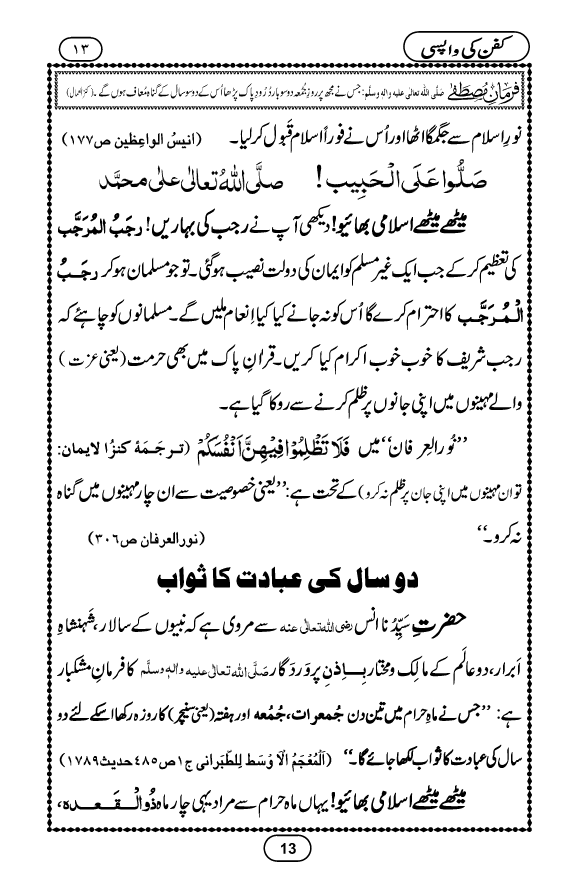 کفن کی واپسی
۱۳
فرمانِ مصطفٰے صلَّی اللہ تعالٰی علیہ والہٖ وسلَّم: جس نے مجھ پر روزِ جُمعہ دو سو بار دُرُودِ پاک پڑھا اُس کے دو سو سال کے گناہ مُعاف ہوں گے۔ (کنز العمال)
نورِ اسلام سے جگمگا اٹھا اور اُس نے فوراً اسلام قَبول کر لیا۔ (انیسُ الواعِظین ص۱۷۷)
صَلُّوا عَلَی الْحَبِیب! صلَّی اللہُ تعالٰی علٰی محمَّد
میٹھے میٹھے اسلامی بھائیو! دیکھی آپ نے رجب کی بہاریں! رجَبُ المُرَجَّب
کی تعظیم کر کے جب ایک غیر مسلم کو ایمان کی دولت نصیب ہوگئی۔ تو جو مسلمان ہو کر رجَبُ
الْمُرَجَّب کا احتِرام کرے گا اُس کو نہ جانے کیا کیا اِنعام ملیں گے۔ مسلمانوں کو چاہئے کہ
رجب شریف کا خوب خوب اکرام کیا کریں۔ قراٰنِ پاک میں بھی حرمت (یعنی عزت)
والے مہینوں میں اپنی جانوں پر ظلم کرنے سے روکا گیا ہے۔
’’نُورالعِرفان‘‘ میں فَلَا تَظْلِمُوْا فِیْهِنَّ اَنْفُسَكُمْ (ترجَمۂ کنزُالایمان:
تو ان مہینوں میں اپنی جان پر ظلم نہ کرو) کے تحت ہے: ’’یعنی خصوصیت سے ان چار مہینوں میں گناہ
نہ کرو۔‘‘ (نورالعرفان ص۳۰۶)
دو سال کی عبادت کا ثواب
حضرتِ سیِّدُنا انس رضی اللہ تعالٰی عنہ سے مروی ہے کہ نبیوں کے سالار، شَہَنشاہِ
اَبرار، دو عالَم کے مالِک و مختار بِاِذنِ پروَردَگار صَلَّی اللہ تعالٰی علیہ والہٖ وسلَّم کا فرمانِ مشکبار
ہے: ’’جس نے ماہِ حرام میں تین دن جُمعرات، جُمُعہ اور ہفتہ (یعنی سنیچر) کا روزہ رکھا اسکے لئے دو
سال کی عبادت کا ثواب لکھا جائے گا۔‘‘ (اَلْمُعْجَمُ الْاَوْسَط لِلطَّبَرانی ج۱ ص۴۸۵ حدیث۱۷۸۹)
میٹھے میٹھے اسلامی بھائیو! یہاں ماہِ حرام سے مراد یہی چار ماہ ذُوالْقَعدہ،
13